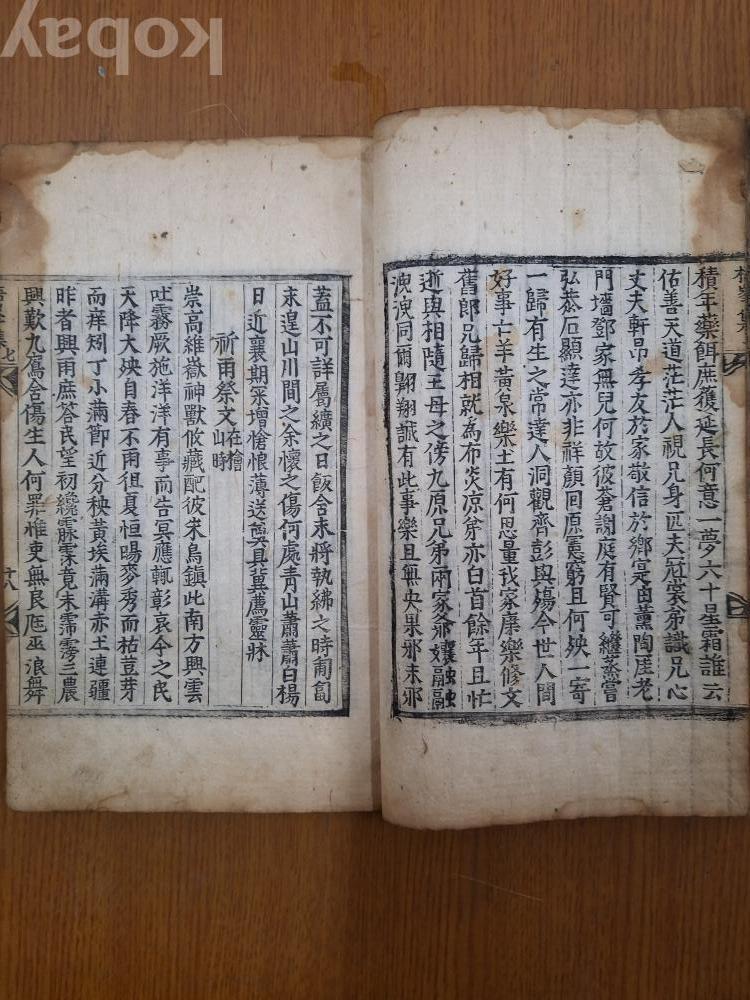 kobay
積年藥餌庶獲延長何意一夢六十星霜誰云
佑善天道茫茫人視兄身匹夫冠裳弟識兄心
丈夫軒昂孝友於家敬信於鄉寔由薰陶厓老
門墻鄧家無兒何故彼蒼謝庭有賢可繼蒸嘗
弘恭石顯達亦非祥顏回原憲窮且何殃一寄
一歸有生之常達人洞觀齊彭與殤今世人間
好事亡羊黃泉樂土有何思量我家庶樂修文
舊郞兄歸相就為布炎凉弟亦白首餘年且忙
逝與相隨王母之傍九原兄弟兩家爺孃融融
洩洩同爾翺翔誠有此事樂且無央果邪未邪
蓋不可詳屬纊之日飯含未將執紼之時匍匐
末遑山川間之余懷之傷何處靑山蕭蕭白楊
日近襄期采增愴悢薄送奠具冀薦靈牀
祈雨祭文在檜山時
崇高維嶽神獸攸藏配彼朱鳥鎭此南方興雲
吐霧厥施洋洋有事而告冥應輒彰哀今之民
天降大殃自春不雨徂夏恒暘麥秀而枯荳芽
而痒矧丁小滿節近分秧黃埃滿溝赤土連疆
昨者興雨庶答民望初纔霢霂竟未霈雱三農
興歎九鴈舍傷生人何罪惟吏無良尫巫浪舞
七
十八